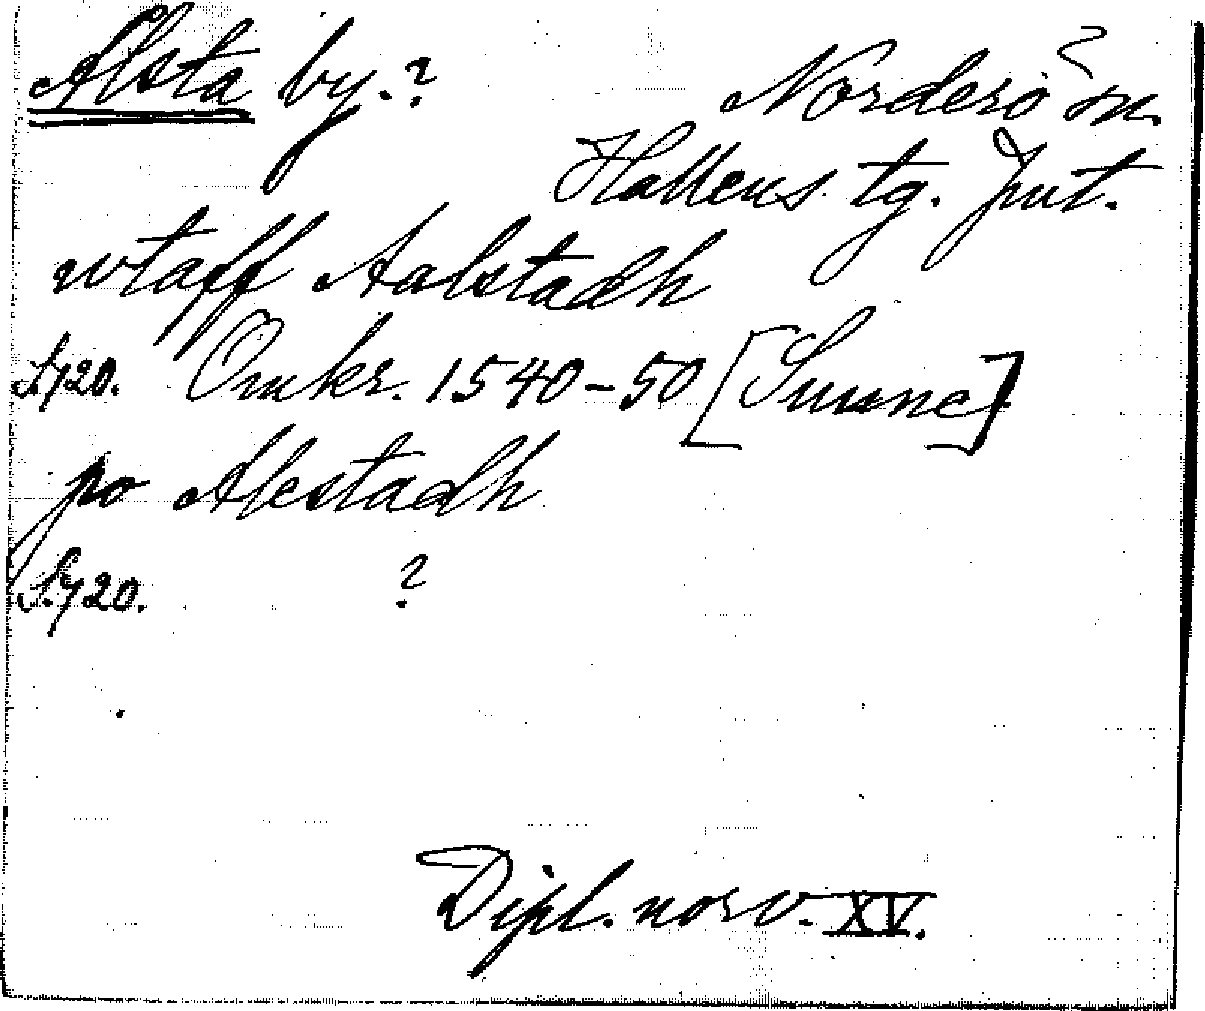 Alsta by.?
Norderö sn.
Hallens tg. Jmt.
wtaff Aalstadh
S. 720. Omkr. 1540-50 [Sunne]
po Alestadh
S. 720. ?
Dipl. norv. XV.